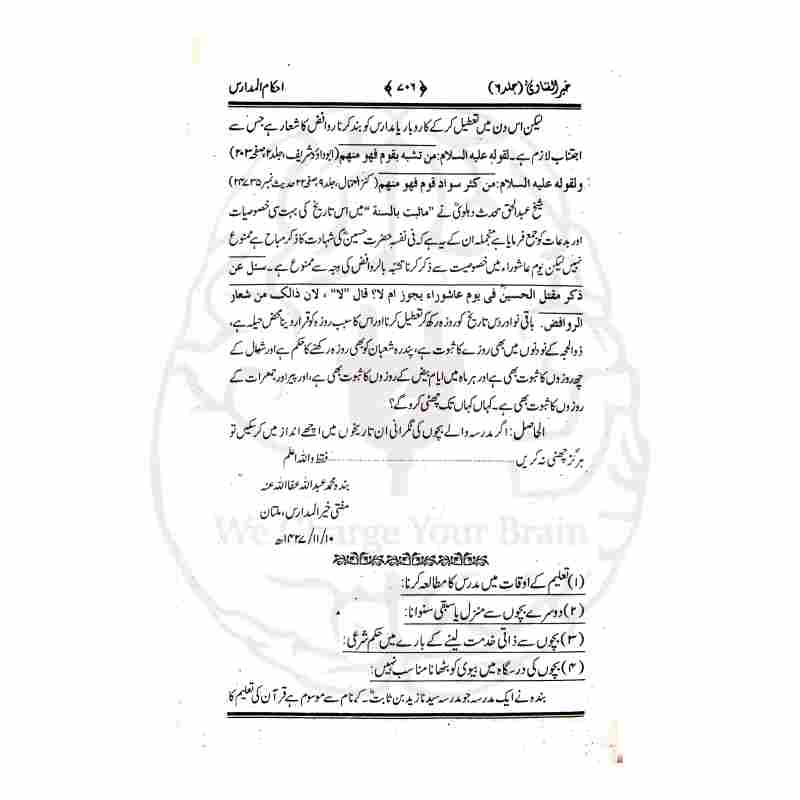 خیر الفتاویٰ (جلد ۶) ﴿۷۰۶﴾ احکام المدارس
لیکن اس دن میں تعطیل کر کے کاروبار یا مدارس کو بند کرنا روافض کا شعار ہے جس سے
اجتناب لازم ہے۔ لقولہ علیہ السلام: من تشبہ بقوم فھو منھم (ابوداؤد شریف، جلد ۲، صفحہ ۲۰۳)
ولقولہ علیہ السلام: من کثر سواد قوم فھو منھم (کنز العمال، جلد ۹، صفحہ ۲۲ حدیث نمبر ۲۴۷۳۵)
شیخ عبدالحق محدث دہلویؒ نے "ماثبت بالسنۃ" میں اس تاریخ کی بہت سی خصوصیات
اور بدعات کو جمع فرمایا ہے منجملہ ان کے یہ ہے کہ فی نفسہ حضرت حسینؓ کی شہادت کا ذکر مباح ہے ممنوع
نہیں لیکن یوم عاشوراء میں خصوصیت سے ذکر کرنا تشبہ بالروافض کی وجہ سے ممنوع ہے۔ سئل عن
ذکر مقتل الحسینؓ فی یوم عاشوراء یجوز ام لا؟ قال "لا" ، لان ذالک من شعار
الروافض. باقی نو اور دس تاریخ کو روزہ رکھ کر تعطیل کرنا اور اس کا سبب روزہ کو قرار دینا محض حیلہ ہے،
ذوالحجہ کے نو دنوں میں بھی روزے کا ثبوت ہے، پندرہ شعبان کو بھی روزہ رکھنے کا حکم ہے اور شوال کے
چھ روزوں کا ثبوت بھی ہے اور ہر ماہ میں ایام بیض کے روزوں کا ثبوت بھی ہے، اور پیر اور جمعرات کے
روزوں کا ثبوت بھی ہے۔ کہاں کہاں تک چھٹی کرو گے؟
الحاصل: اگر مدرسہ والے بچوں کی نگرانی ان تاریخوں میں اچھے انداز میں کر سکیں تو
ہرگز چھٹی نہ کریں ........ فقط واللہ اعلم
بندہ محمد عبداللہ عفا اللہ عنہ
مفتی خیر المدارس، ملتان
۱۰/۱۱/۱۴۲۷ھ
We Charge Your Brain
(۱) تعلیم کے اوقات میں مدرس کا مطالعہ کرنا:
(۲) دوسرے بچوں سے منزل یا سبقی سنوانا:
(۳) بچوں سے ذاتی خدمت لینے کے بارے میں حکم شرعی:
(۴) بچوں کی درسگاہ میں بیوی کو بٹھانا مناسب نہیں:
بندہ نے ایک مدرسہ جو مدرسہ سیدنا زید بن ثابتؓ کے نام سے موسوم ہے قرآن کی تعلیم کا